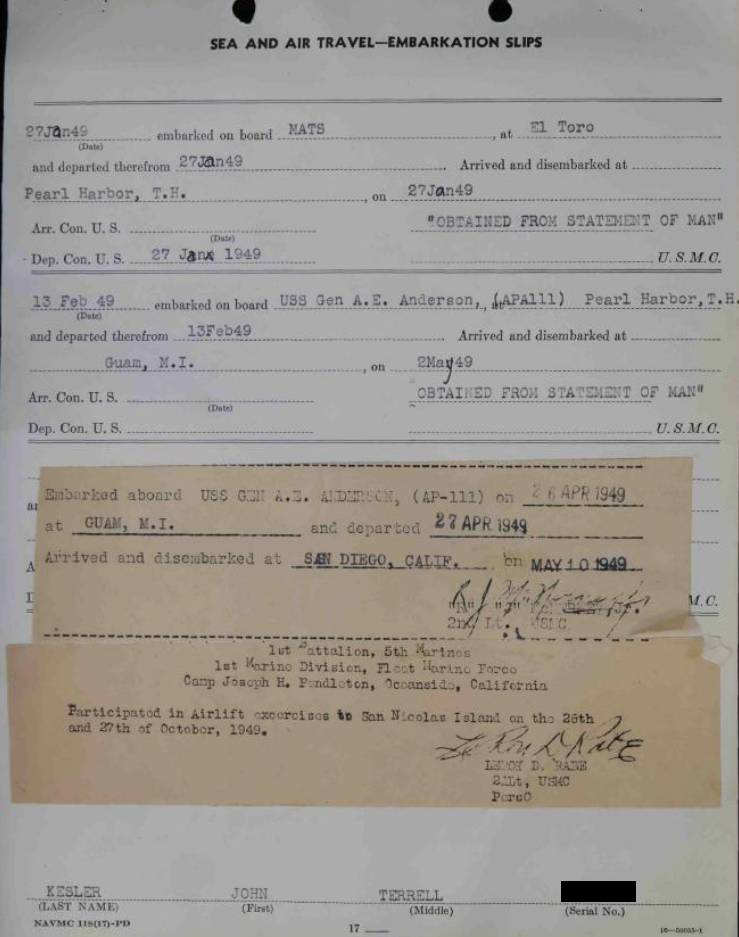 SEA AND AIR TRAVEL—EMBARKATION SLIPS
27Jan49 embarked on board MATS, at El Toro
(Date)
and departed therefrom 27Jan49 Arrived and disembarked at
Pearl Harbor, T.H., on 27Jan49
Arr. Con. U. S. "OBTAINED FROM STATEMENT OF MAN"
(Date)
Dep. Con. U. S. 27 Jan 1949 U.S.M.C.
13 Feb 49 embarked on board USS Gen A.E. Anderson, (APA111) Pearl Harbor,T.H.
(Date)
and departed therefrom 13Feb49 Arrived and disembarked at
Guam, M.I., on 2May49
Arr. Con. U. S. OBTAINED FROM STATEMENT OF MAN"
(Date)
Dep. Con. U. S. U.S.M.C.
Embarked aboard USS GEN A.E. ANDERSON, (AP-111) on 26 APR 1949
at GUAM, M.I. and departed 27 APR 1949
Arrived and disembarked at SAN DIEGO, CALIF. on MAY 10 1949
"R" "J" Jr. M.C.
2nd Lt. USMC.
1st Battalion, 5th Marines
1st Marine Division, Fleet Marine Force
Camp Joseph H. Pendleton, Oceanside, California
Participated in Airlift excercises to San Nicolas Island on the 26th
and 27th of October, 1949.
LEROY D. RABE
2dLt, USMC
PersO
KESLER JOHN TERRELL
(LAST NAME) (First) (Middle) (Serial No.)
NAVMC 118(17)-PD
17